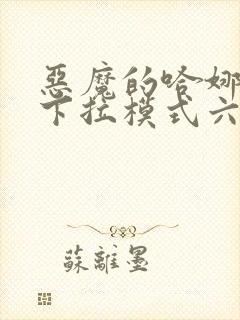 惡魔的哈娜
下拉模式六
蘇離墨